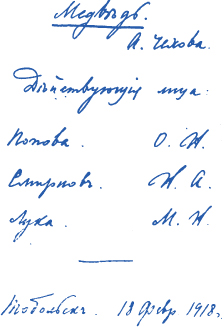 Медвѣдь.
А. Чехова.
Дѣйствующія лица:
Попова. О. Н.
Смирновъ. Н. А.
Лука. М. Н.
Тобольскъ. 18 Февр 1918 г.